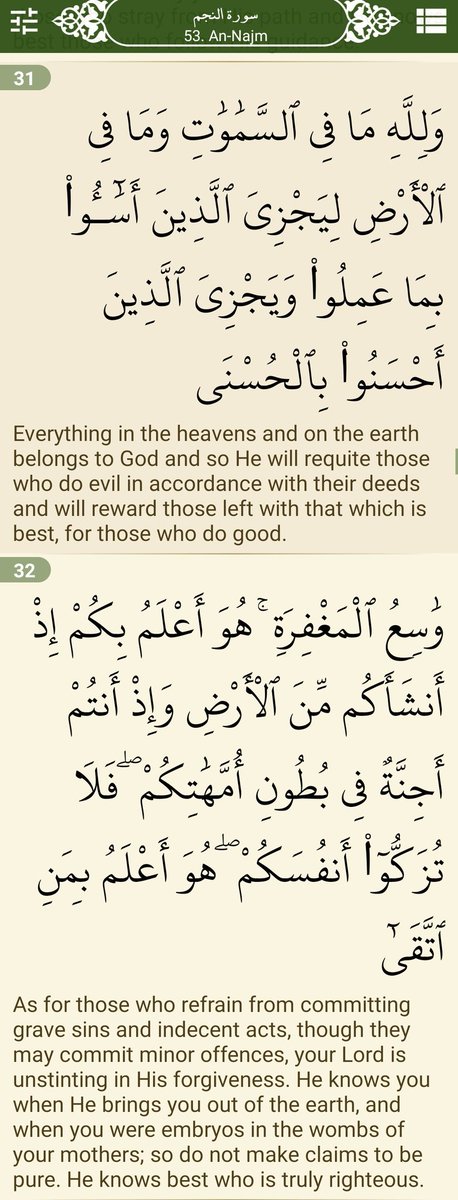 stray path and
best those who
سورة النجم
53. An-Najm
31
وَلِلَّهِ مَا فِى ٱلسَّمَٰوَٰتِ وَمَا فِى
ٱلْأَرْضِ لِيَجْزِىَ ٱلَّذِينَ أَسَٰٓـُٔوا۟
بِمَا عَمِلُوا۟ وَيَجْزِىَ ٱلَّذِينَ
أَحْسَنُوا۟ بِٱلْحُسْنَى
Everything in the heavens and on the earth
belongs to God and so He will requite those
who do evil in accordance with their deeds
and will reward those left with that which is
best, for those who do good.
32
وَٰسِعُ ٱلْمَغْفِرَةِ ۚ هُوَ أَعْلَمُ بِكُمْ إِذْ
أَنشَأَكُم مِّنَ ٱلْأَرْضِ وَإِذْ أَنتُمْ
أَجِنَّةٌ فِى بُطُونِ أُمَّهَٰتِكُمْ ۖ فَلَا
تُزَكُّوٓا۟ أَنفُسَكُمْ ۖ هُوَ أَعْلَمُ بِمَنِ
ٱتَّقَىٰٓ
As for those who refrain from committing
grave sins and indecent acts, though they
may commit minor offences, your Lord is
unstinting in His forgiveness. He knows you
when He brings you out of the earth, and
when you were embryos in the wombs of
your mothers; so do not make claims to be
pure. He knows best who is truly righteous.